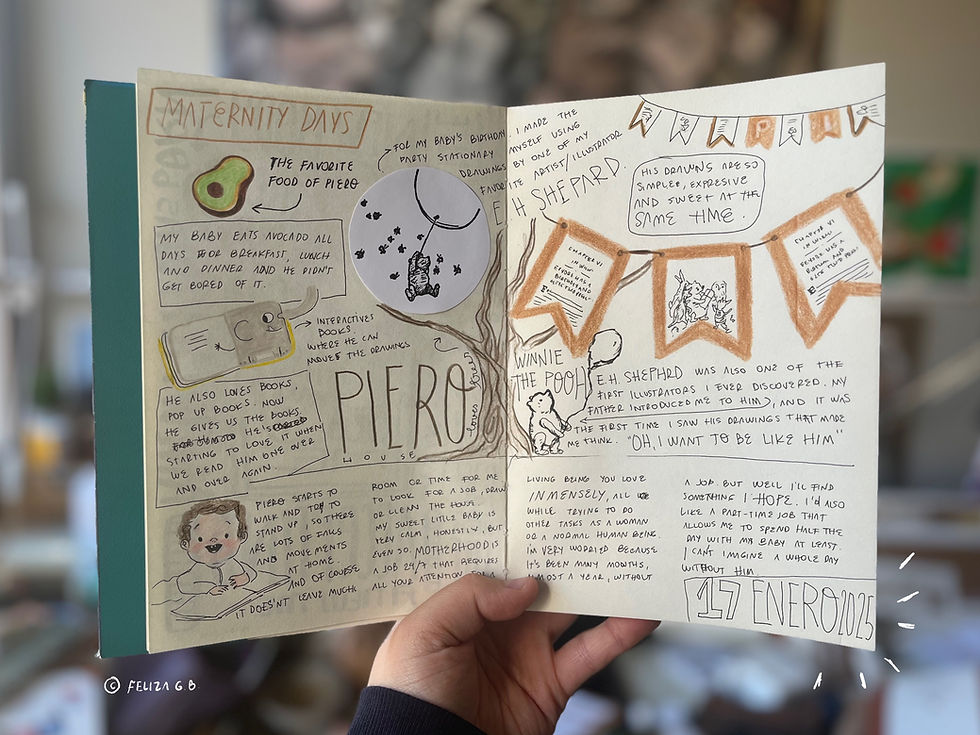 MATERNITY DAYS
THE FAVORITE
FOOD OF PIERO
MY BABY EATS AVOCADO ALL
DAYS FOR BREAKFAST, LUNCH
AND DINNER AND HE DIDN'T
GET BORED OF IT.
FOR MY BABY'S BIRTHDAY
PARTY STATIONARY
DRAWINGS
FAVOR
E.
INTERACTIVES
BOOKS.
WHERE HE CAN
MOVES THE DRAWINGS
HE ALSO LOVES BOOKS,
POP UP BOOKS. NOW
HE GIVES US THE BOOKS.
HE'S
STARTING TO LOVE IT WHEN
WE READ HIM ONE OVER
AND OVER AGAIN.
PIERO
HOUSE
PIERO STARTS TO
WALK AND TRY TO
STAND UP, SO THERE
ARE LOTS OF FALLS
AND MOVEMENTS
AT HOME.
AND OF COURSE
IT DOES'NT LEAVE MUCH
ROOM OR TIME FOR ME
TO LOOK FOR A JOB, DRAW
OR CLEAN THE HOUSE.
MY SWEET LITTLE BABY IS
VERY CALM, HONESTLY, BUT
EVEN SO. MOTHERHOOD IS
A JOB 24/7 THAT REQUIRES
ALL YOUR ATTENTION FOR A
. I MADE THE
MYSELF USING
BY ONE OF MY
ITE ARTIST/ILLUSTRATOR
H SHEPARD.
HIS DRAWINGS ARE SO
SIMPLER, EXPRESIVE
AND SWEET AT THE
SAME TIME.
CHAPTER VI
IN WHICH
EEYORE HAS A
BIRTHDAY AND
GETS TWO
CHAPTER VI
IN WHICH
EEYORE HAS A
BIRTHDAY AND
GETS TWO
WINNIE
THE POOH
E.H. SHEPHARD WAS ALSO ONE OF THE
FIRST ILLUSTRATORS I EVER DISCOVERED. MY
FATHER INTRODUCED ME TO HIM, AND IT WAS
THE FIRST TIME I SAW HIS DRAWINGS THAT MADE
ME THINK. "OH, I WANT TO BE LIKE HIM"
LIVING BEING YOU LOVE
INMENSELY, ALL
WHILE TRYING TO DO
OTHER TASKS AS A WOMAN
OR A NORMAL HUMAN BEING.
I'M VERY WORRIED BECAUSE
IT'S BEEN MANY MONTHS,
ALMOST A YEAR, WITHOUT
A JOB. BUT WELL I'LL FIND
SOMETHING I HOPE. I'D ALSO
LIKE A PART-TIME JOB THAT
ALLOWS ME TO SPEND HALF THE
DAY WITH MY BABY AT LEAST.
I CAN'T IMAGINE A WHOLE DAY
WITHOUT HIM.
17 ENERO 2025
© FELIZA G.B.